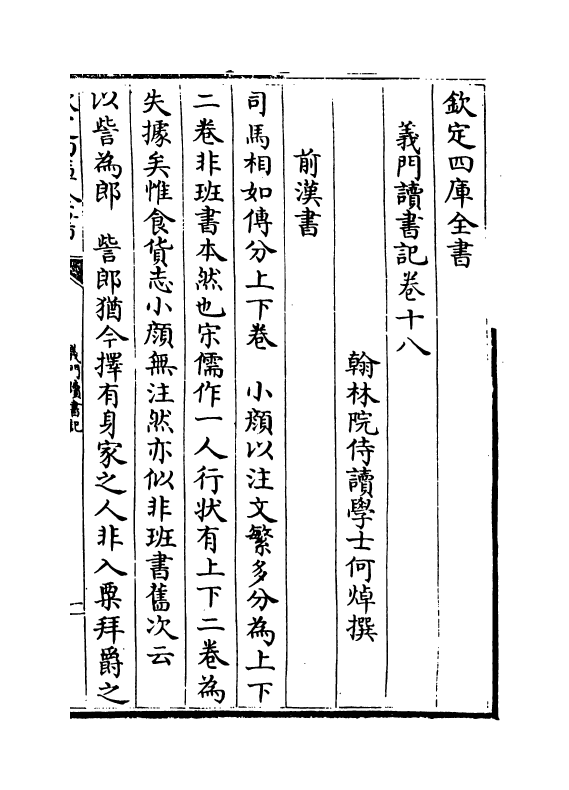 欽定四庫全書
義門讀書記卷十八
翰林院侍讀學士何焯撰
前漢書
司馬相如傳分上下卷　小顏以注文繁多分為上下
二卷非班書本然也宋儒作一人行狀有上下二卷為
失據矣惟食貨志小顏無注然亦似非班書舊次云
以訾為郎　訾郎猶今擇有身家之人非入粟拜爵之
義門讀書記
一